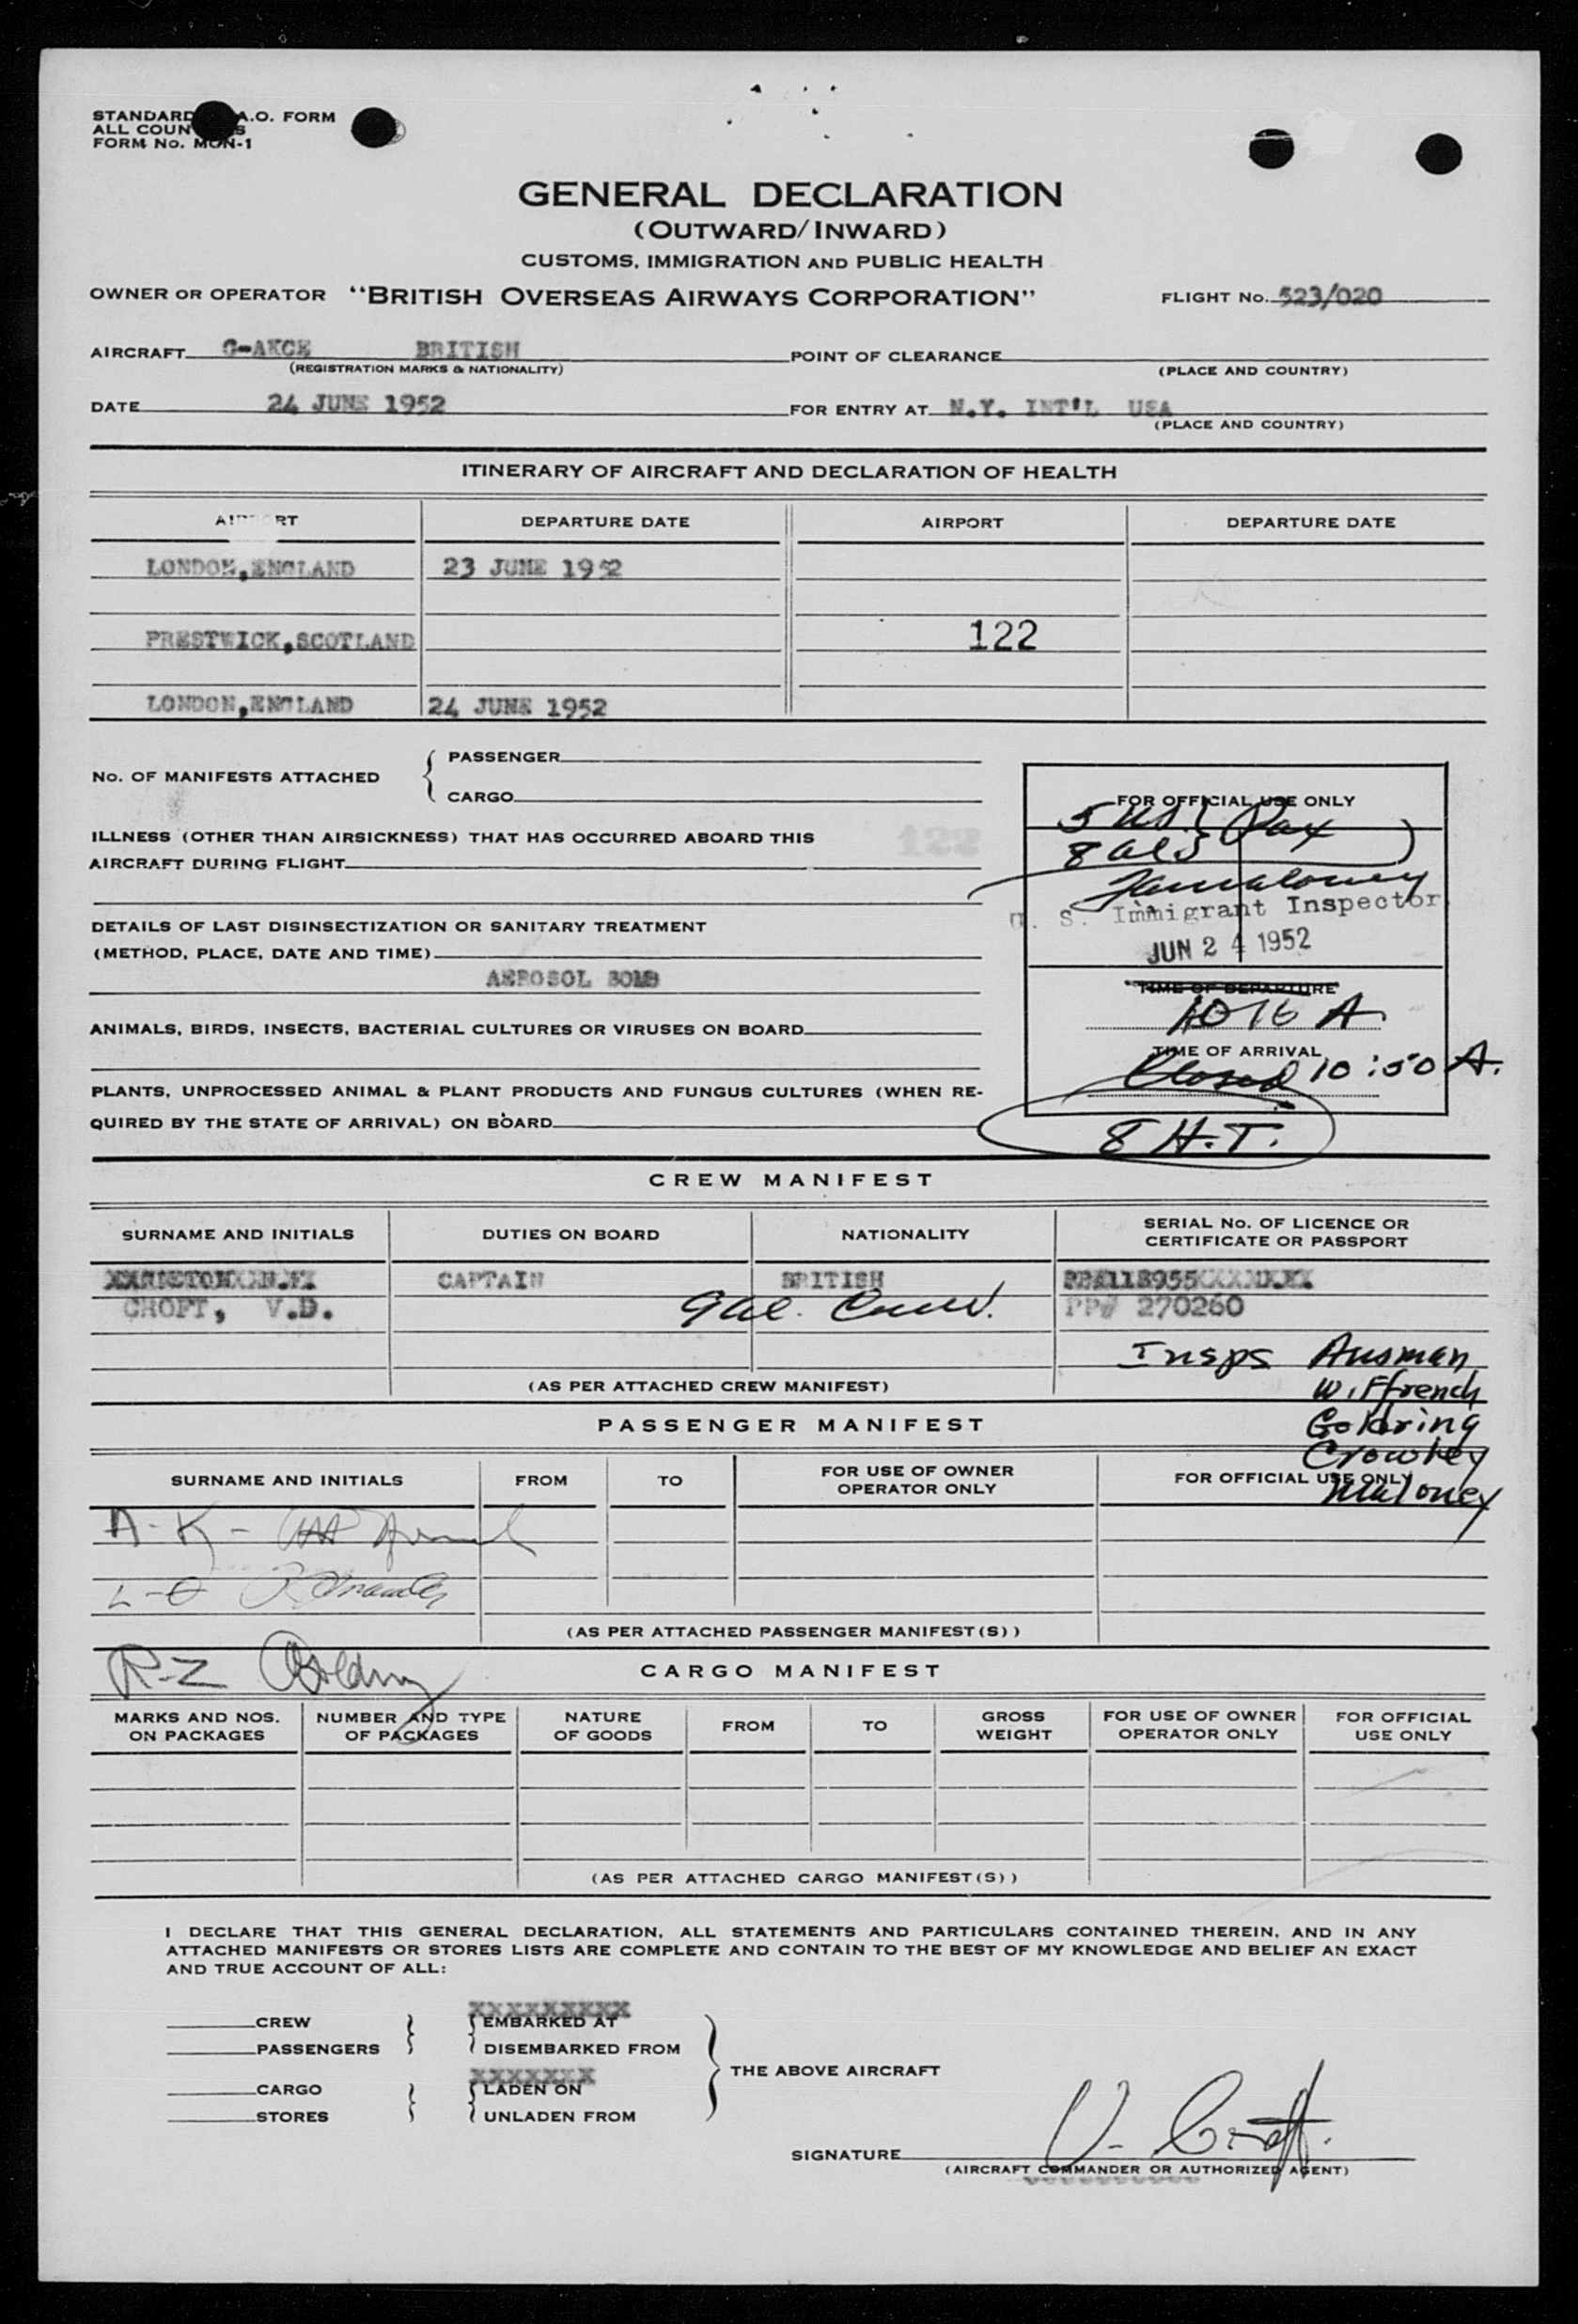 STANDARD A.O. FORM
ALL COUN S
FORM No. MON-1
GENERAL DECLARATION
(OUTWARD/INWARD)
CUSTOMS, IMMIGRATION AND PUBLIC HEALTH
OWNER OR OPERATOR "BRITISH OVERSEAS AIRWAYS CORPORATION" FLIGHT No. 523/020
AIRCRAFT G-AKCE BRITISH POINT OF CLEARANCE
(REGISTRATION MARKS & NATIONALITY) (PLACE AND COUNTRY)
DATE 24 JUNE 1952 FOR ENTRY AT N.Y. INT'L USA
(PLACE AND COUNTRY)
ITINERARY OF AIRCRAFT AND DECLARATION OF HEALTH
AIRPORT DEPARTURE DATE AIRPORT DEPARTURE DATE
LONDON,ENGLAND 23 JUNE 1952
PRESTWICK,SCOTLAND 122
LONDON,ENGLAND 24 JUNE 1952
No. OF MANIFESTS ATTACHED
PASSENGER
CARGO
ILLNESS (OTHER THAN AIRSICKNESS) THAT HAS OCCURRED ABOARD THIS 122
AIRCRAFT DURING FLIGHT
DETAILS OF LAST DISINSECTIZATION OR SANITARY TREATMENT
(METHOD, PLACE, DATE AND TIME)
AEROSOL BOMB
ANIMALS, BIRDS, INSECTS, BACTERIAL CULTURES OR VIRUSES ON BOARD
PLANTS, UNPROCESSED ANIMAL & PLANT PRODUCTS AND FUNGUS CULTURES (WHEN RE-
QUIRED BY THE STATE OF ARRIVAL) ON BOARD
FOR OFFICIAL USE ONLY
5 US Pax
8 als
U. S. Immigrant Inspector
JUN 24 1952
TIME OF DEPARTURE
1016 A
TIME OF ARRIVAL
Closed 10:50 A.
8 H.T.
CREW MANIFEST
SURNAME AND INITIALS DUTIES ON BOARD NATIONALITY SERIAL No. OF LICENCE OR
CERTIFICATE OR PASSPORT
CAPTAIN BRITISH
CROFT, V.D. PP# 270260
Insps Ausman
W. Ffrench
Goldring
Crowley
Maloney
(AS PER ATTACHED CREW MANIFEST)
PASSENGER MANIFEST
SURNAME AND INITIALS FROM TO FOR USE OF OWNER
OPERATOR ONLY FOR OFFICIAL USE ONLY
A-K-
L-O
(AS PER ATTACHED PASSENGER MANIFEST(S))
R-Z
CARGO MANIFEST
MARKS AND NOS.
ON PACKAGES NUMBER AND TYPE
OF PACKAGES NATURE
OF GOODS FROM TO GROSS
WEIGHT FOR USE OF OWNER
OPERATOR ONLY FOR OFFICIAL
USE ONLY
(AS PER ATTACHED CARGO MANIFEST(S))
I DECLARE THAT THIS GENERAL DECLARATION, ALL STATEMENTS AND PARTICULARS CONTAINED THEREIN, AND IN ANY
ATTACHED MANIFESTS OR STORES LISTS ARE COMPLETE AND CONTAIN TO THE BEST OF MY KNOWLEDGE AND BELIEF AN EXACT
AND TRUE ACCOUNT OF ALL:
XXXXXXXXX
CREW EMBARKED AT
PASSENGERS DISEMBARKED FROM
XXXXXXX
THE ABOVE AIRCRAFT
CARGO LADEN ON
STORES UNLADEN FROM
SIGNATURE V. Croft.
(AIRCRAFT COMMANDER OR AUTHORIZED AGENT)